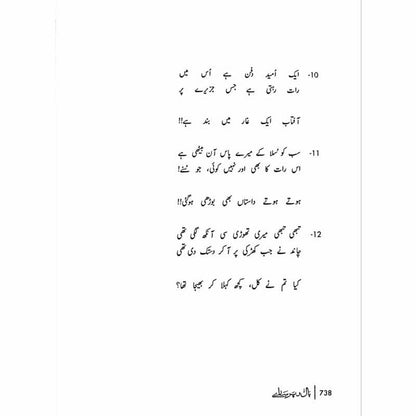 10- ایک اُمید دفن ہے اُس میں
رات رہتی ہے جس جزیرے پر
آفتاب ایک غار میں بند ہے!!
11- سب کو سُلا کے میرے پاس آن بیٹھی ہے
اس رات کا بھی اور نہیں کوئی، جو سُنے!
ہوتے ہوتے داستاں بھی بوڑھی ہوگئی!!
12- تبھی تبھی میری تھوڑی سی آنکھ لگی تھی
چاند نے جب کھڑکی پر آ کر دستک دی تھی
کیا تم نے کل، کچھ کہلا کر بھیجا تھا؟
738